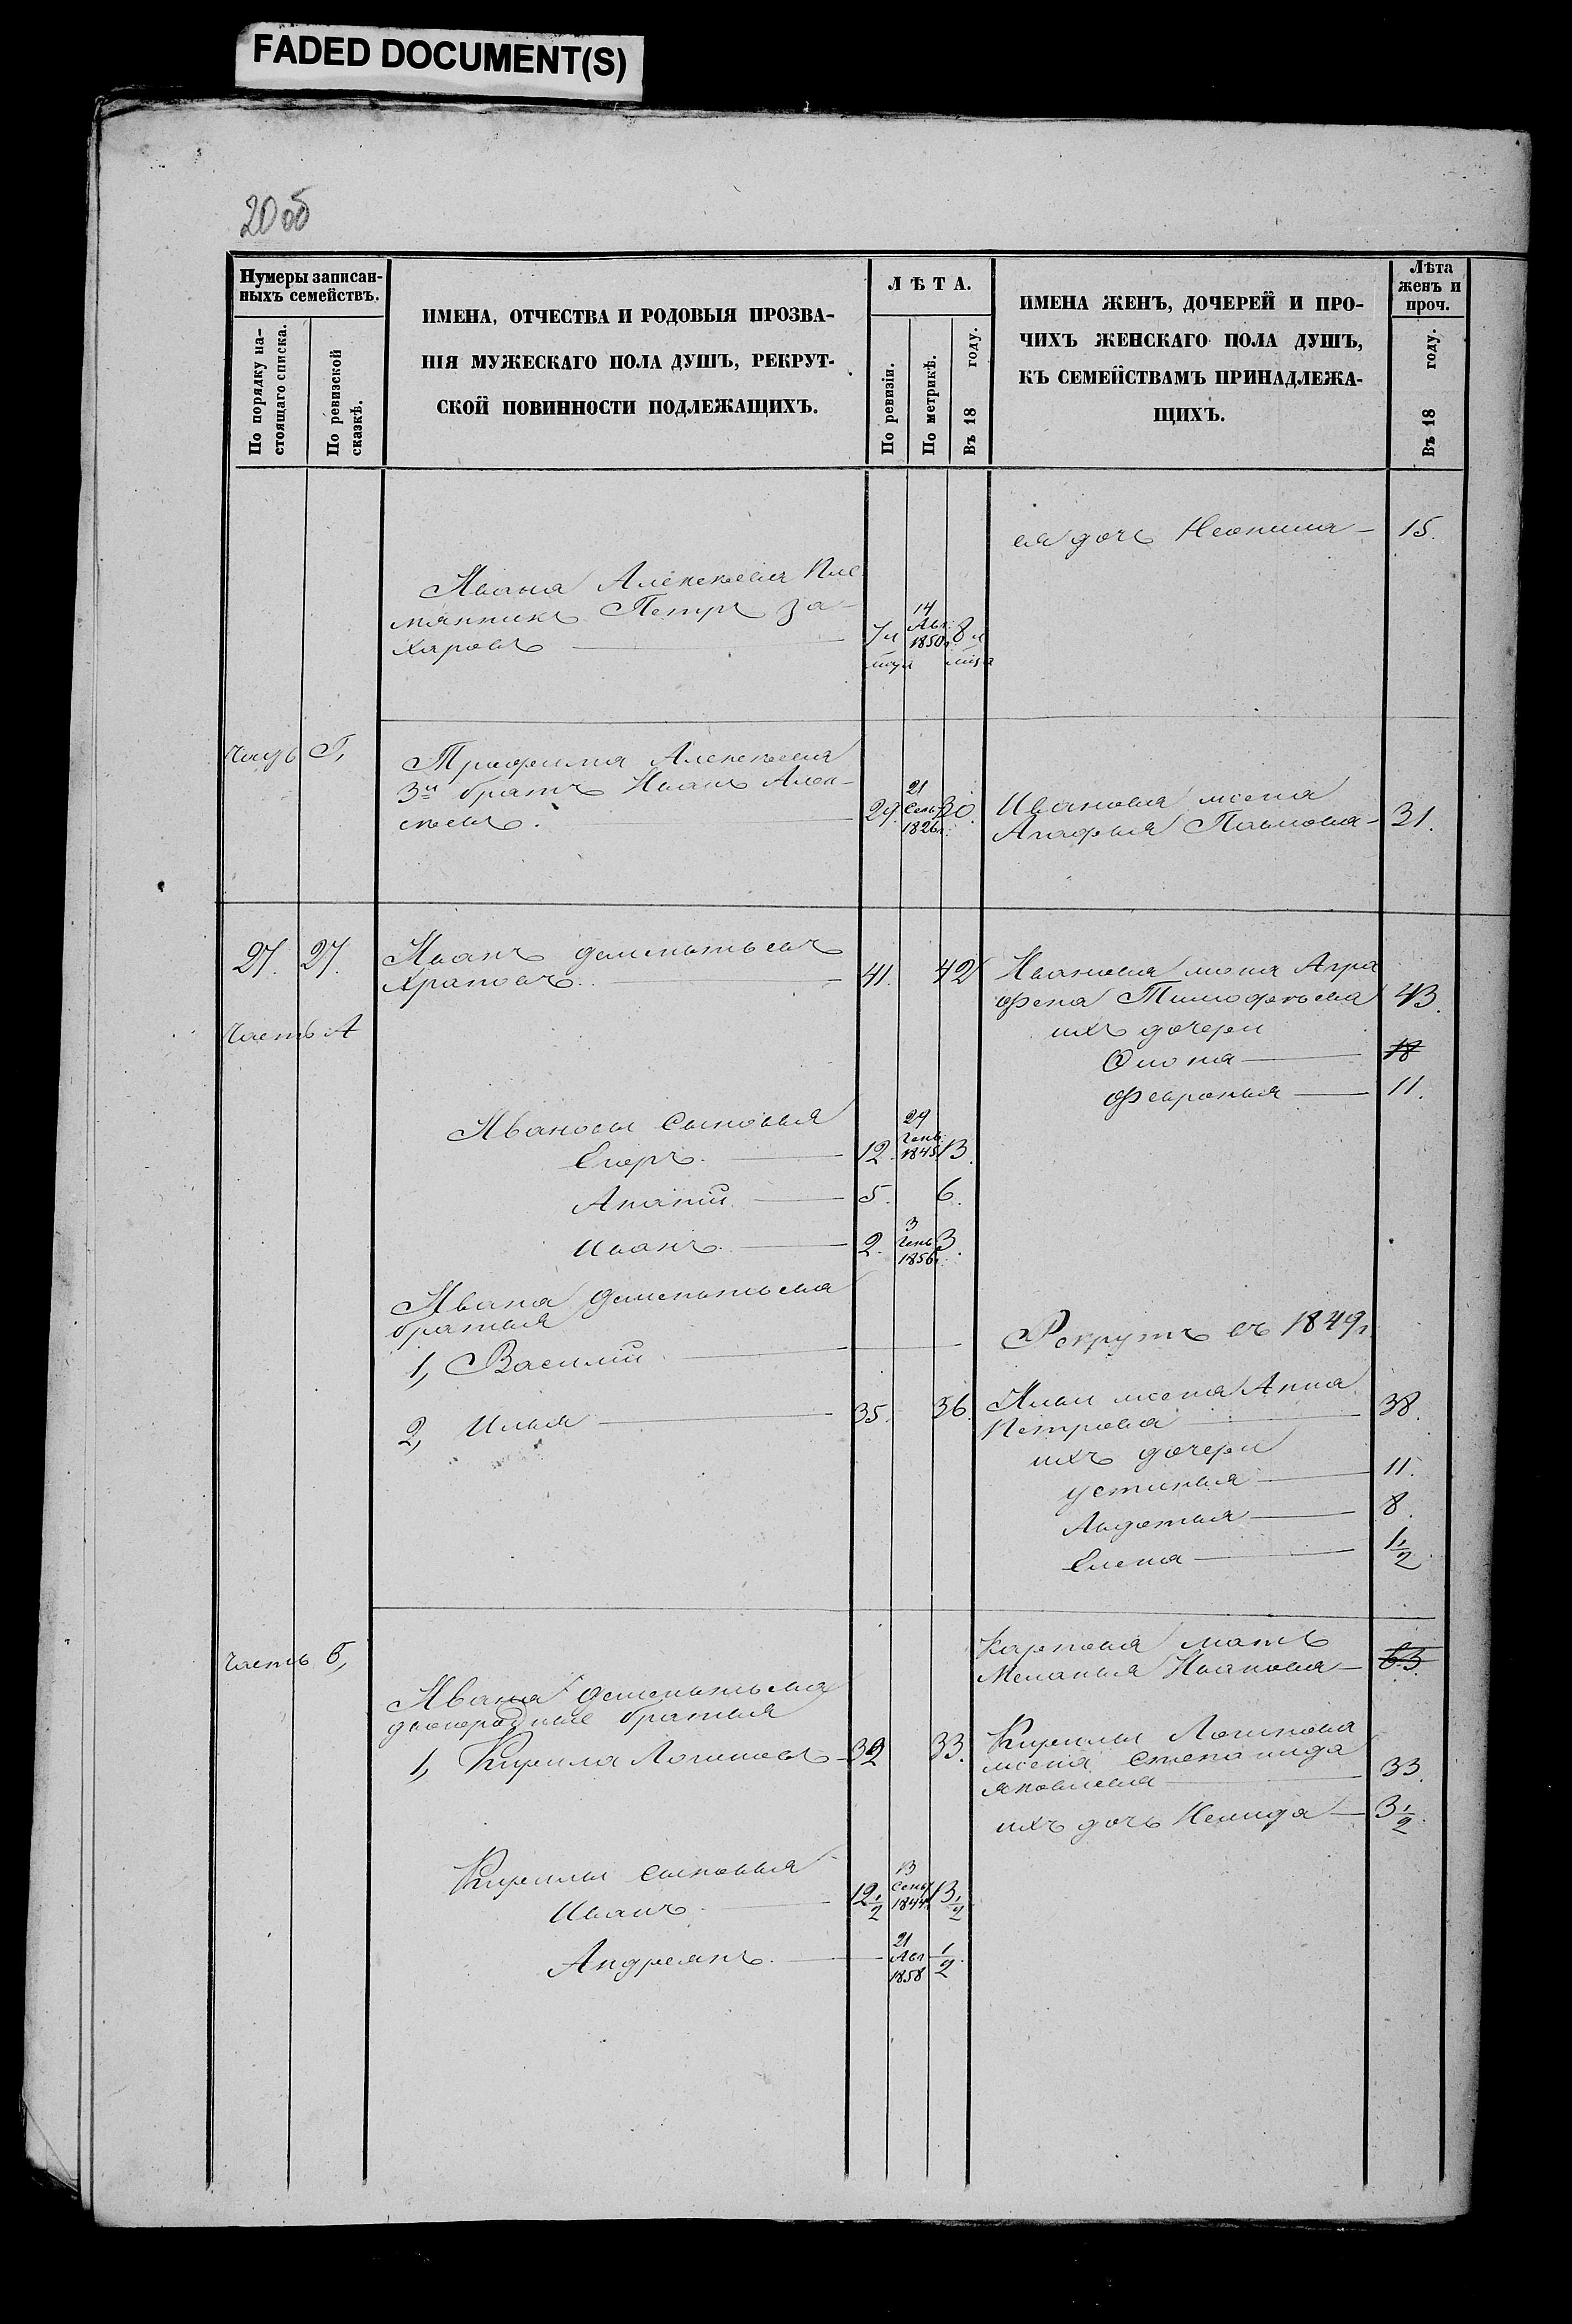 FADED DOCUMENT(S)
20 об
Нумеры записан-
ныхъ семействъ.
По порядку на-
стоящаго списка.
По ревизской
сказкѣ.
ИМЕНА, ОТЧЕСТВА И РОДОВЫЯ ПРОЗВА-
НІЯ МУЖЕСКАГО ПОЛА ДУШЪ, РЕКРУТ-
СКОЙ ПОВИННОСТИ ПОДЛЕЖАЩИХЪ.
ЛѢТА.
По ревизіи.
По метрикѣ.
Въ 18 году.
ИМЕНА ЖЕНЪ, ДОЧЕРЕЙ И ПРО-
ЧИХЪ ЖЕНСКАГО ПОЛА ДУШЪ,
КЪ СЕМЕЙСТВАМЪ ПРИНАДЛЕЖА-
ЩИХЪ.
Лѣта
женъ и
проч.
Въ 18 году.
ея дочь Неонила 15.
Ивана Алексѣева Пле
мянникъ Петръ За-
харовъ 7 14 Авг. 1850 г. 8
Часть Г,
Трофима Алексѣева
3й братъ Иванъ Алек-
сѣевъ. 29. 21 Сент. 1826 г. 30.
Иванова жена
Агафья Павлова 31.
27. 27.
Иванъ Дементьевъ
Храповъ. 41. 42
Иванова жена Агра
фена Тимофѣева 43.
Часть А
ихъ дочери
18
Февронья 11.
Ивановы сыновья
Егоръ. 12. 29 Генв. 1845 13.
Ананій 5. 6.
Иванъ. 2. 3 Генв. 1856 3.
Ивана Дементьева
братья
1, Василій
Рекрутъ въ 1849 г.
2, Илья 35. 36.
Ильи жена Анна
Петрова 38.
ихъ дочери
Устинья 11.
Авдотья 8.
Елена 1 1/2
Часть Б,
Карпова мать
Меланья Иванова 65.
Ивана Дементьева
двоюродные братья
1, Кирила Логиновъ 32 33.
Кирилы Логинова
жена Степанида
Яковлева 33.
ихъ дочь 3 1/2.
Кирилы сыновья
Иванъ. 12 1/2 13 Сент. 1844 13 1/2
Андреянъ. 21 Авг. 1858 1/2